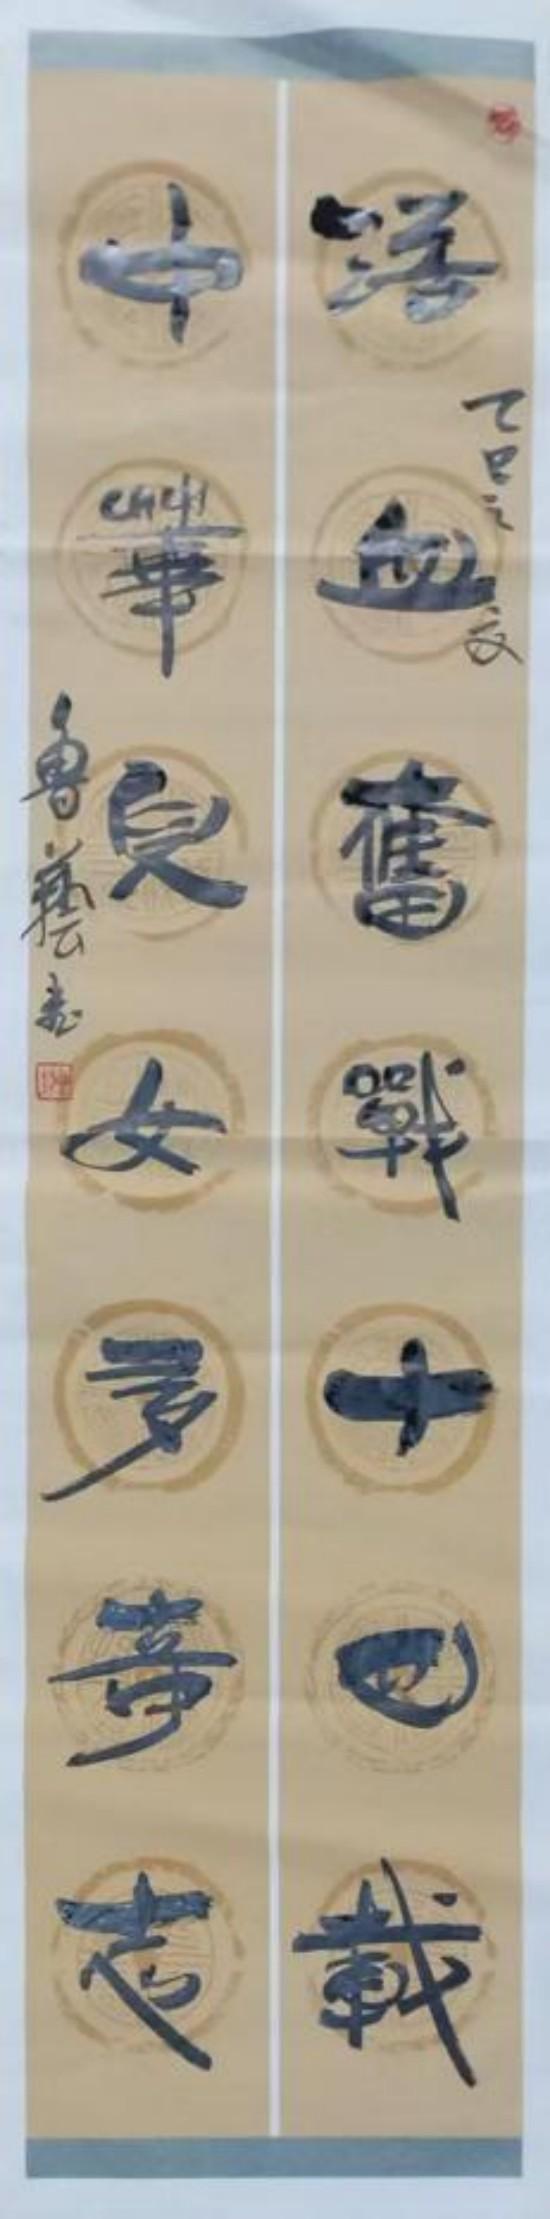 乙巳之夏
浴血奮戰十四載
中華兒女多奇志
魯藝